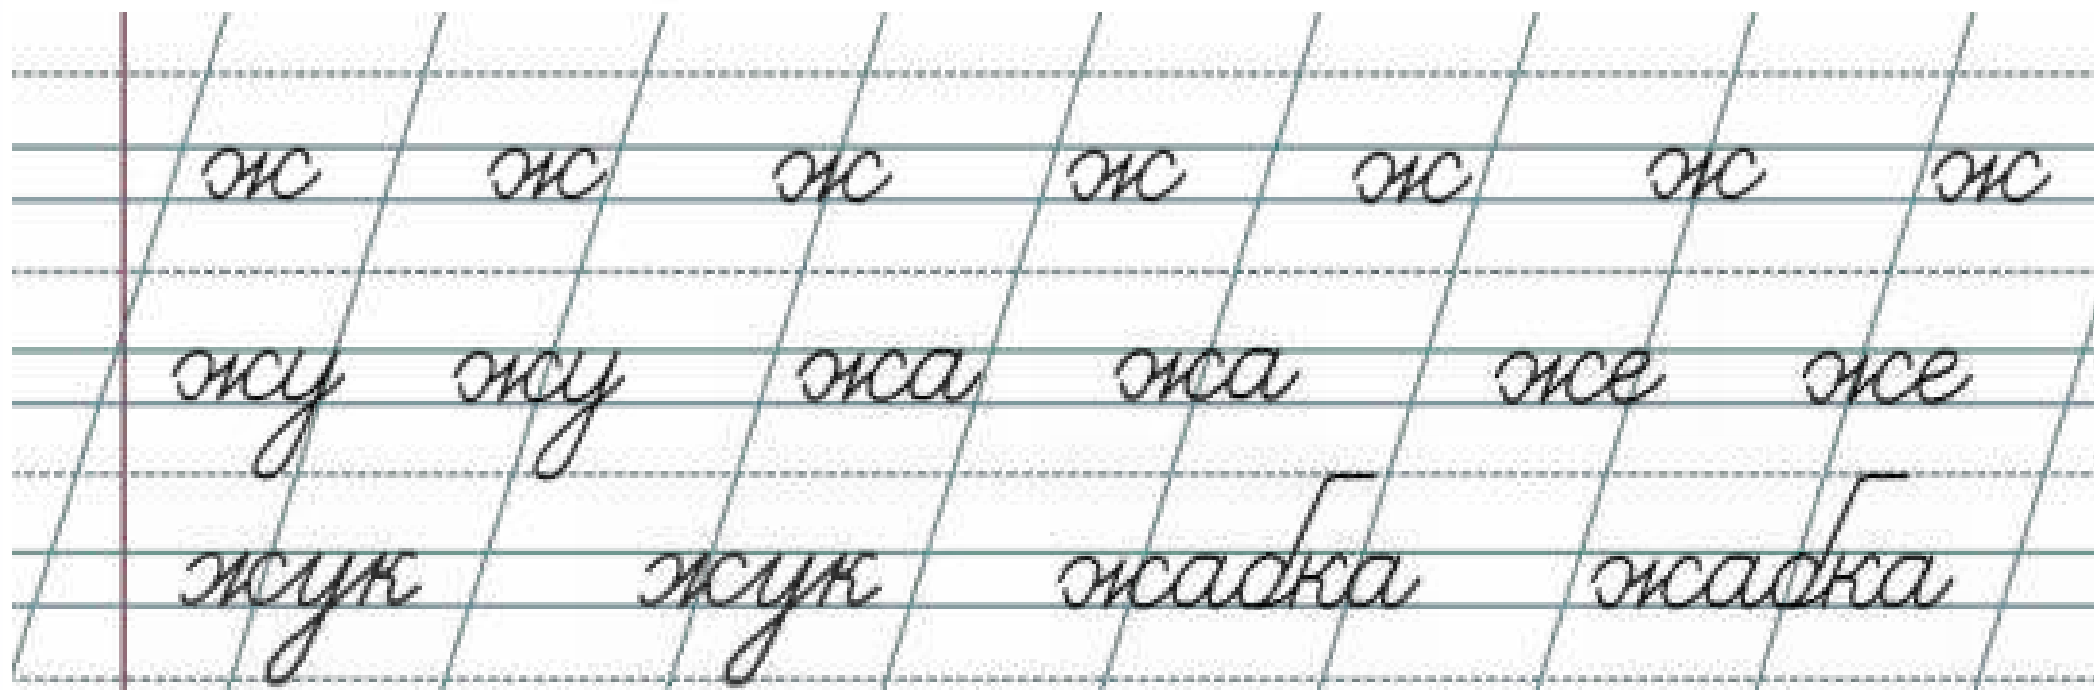 ж ж ж ж ж ж ж
жу жу жа жа же же
жук жук жабка жабка